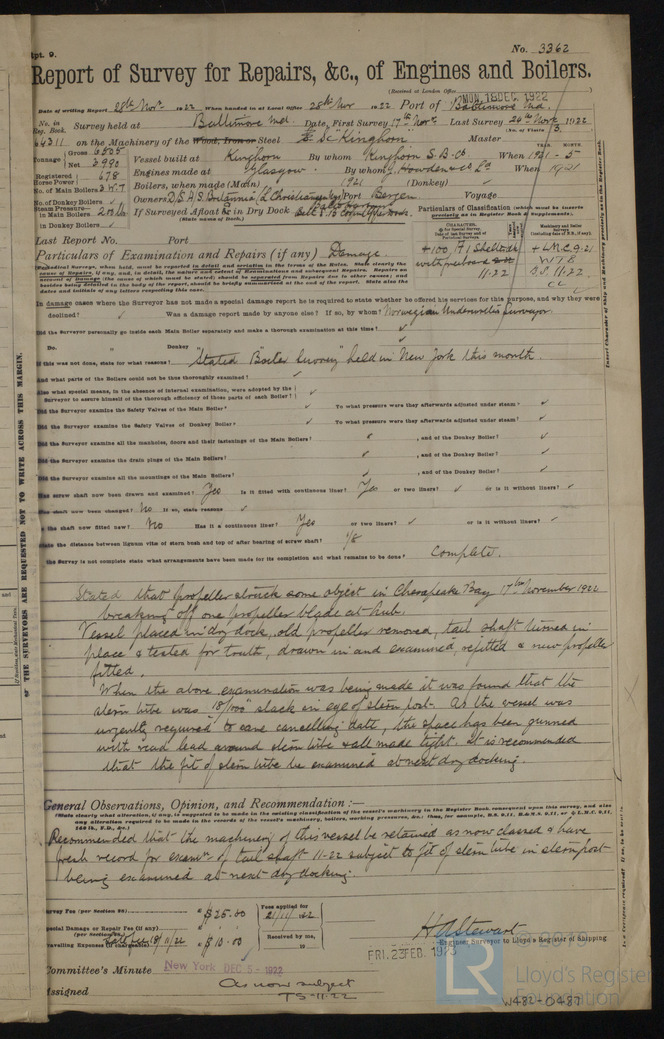 Rpt. 9.
No. 3362
Report of Survey for Repairs, &c., of Engines and Boilers.
(Received at London Office
MON. 18 DEC. 1922
Date of writing Report 28th Novr 1922 When handed in at Local Office 28th Nov 1922 Port of Baltimore Md.
No. in Reg. Book. Survey held at Baltimore Md Date, First Survey 17th Novr. Last Survey 26th Novr. 1922
(No. of Visits 3.
64311 on the Machinery of the Wood, Iron or Steel S.S. "Kinghorn" Master
Tonnage Gross 6505 Net 3990
Vessel built at Kinghorn By whom Kinghorn S.B. Co When 1921-5
Registered Horse Power 678
Engines made at Glasgow. By whom J. Howden & Co Ld When 1921
No. of Main Boilers 3 W.T. Boilers, when made (Main) 1921 (Donkey) ✓
No. of Donkey Boilers ✓ Owners Port Bergen Voyage
Steam Pressure in Main Boilers 200 lbs
in Donkey Boilers ✓
If Surveyed Afloat or in Dry Dock
(State name of Dock.)
Particulars of Classification (which must be inserted precisely as in Register Book & Supplements).
Last Report No. Port
Particulars of Examination and Repairs (if any) Damage.
+100 A1 Shelterdk
with freeboard
11-22
+ LMC 9.21
WTB
B.S. 11-22
CL
In damage cases where the Surveyor has not made a special damage report he is required to state whether he offered his services for this purpose, and why they were
declined? ✓ Was a damage report made by anyone else? If so, by whom? Norwegian Underwriters Surveyor.
Did the Surveyor personally go inside each Main Boiler separately and make a thorough examination at this time? ✓
Do. " Donkey " ✓
If this was not done, state for what reasons? "Stated Boiler Survey" held in New York this month.
And what parts of the Boilers could not be thus thoroughly examined? ✓
Also what special means, in the absence of internal examination, were adopted by the
Surveyor to assure himself of the thorough efficiency of those parts of each Boiler? ✓
Did the Surveyor examine the Safety Valves of the Main Boiler? ✓ To what pressure were they afterwards adjusted under steam? ✓
Did the Surveyor examine the Safety Valves of Donkey Boiler? ✓ To what pressure were they afterwards adjusted under steam? ✓
Did the Surveyor examine all the manholes, doors and their fastenings of the Main Boilers? ✓ , and of the Donkey Boiler? ✓
Did the Surveyor examine the drain plugs of the Main Boilers? ✓ , and of the Donkey Boiler? ✓
Did the Surveyor examine all the mountings of the Main Boilers? ✓ , and of the Donkey Boiler? ✓
Has screw shaft now been drawn and examined? Yes Is it fitted with continuous liner? Yes or two liners? ✓ or is it without liners? ✓
Has shaft now been changed? No If so, state reasons ✓
Is the shaft now fitted new? No Has it a continuous liner? Yes or two liners? ✓ or is it without liners? ✓
State the distance between lignum vitæ of stern bush and top of after bearing of screw shaft? 1/8
If the Survey is not complete state what arrangements have been made for its completion and what remains to be done? Complete.
Stated that propeller struck some object in Chesapeake Bay 17th November 1922
breaking off one propeller blade at hub.
Vessel placed in dry dock, old propeller removed, tail shaft turned in
place & tested for truth, drawn in and examined, refitted & new propeller
fitted.
When the above examination was being made it was found that the
stern tube was 18/1000" slack in eye of stern post. As the vessel was
urgently required to save cancelling date, the space has been gunned
with read lead around stern tube & all made tight. It is recommended
that the fit of stern tube be examined at next dry docking.
General Observations, Opinion, and Recommendation :—
Recommended that the machinery of this vessel be retained as now classed & have
fresh record for examn of tail shaft 11-22 subject to fit of stern tube in sternpost
being examined at next dry docking.
Survey Fee (per Section 28) $25.00
Fees applied for 21/11/22
Special Damage or Repair Fee (if any) (per Section 28.)
Travelling Expenses (if chargeable) $10.00
Received by me, 19
H A Stewart
Engineer Surveyor to Lloyd's Register of Shipping
FRI. 23 FEB. 1923
Committee's Minute New York DEC 5 - 1922
Assigned As now subject
TS-11-22
OF THE SURVEYORS ARE REQUESTED NOT TO WRITE ACROSS THIS MARGIN.
© 2019
LR
Lloyd's Register
Foundation
W482-0487